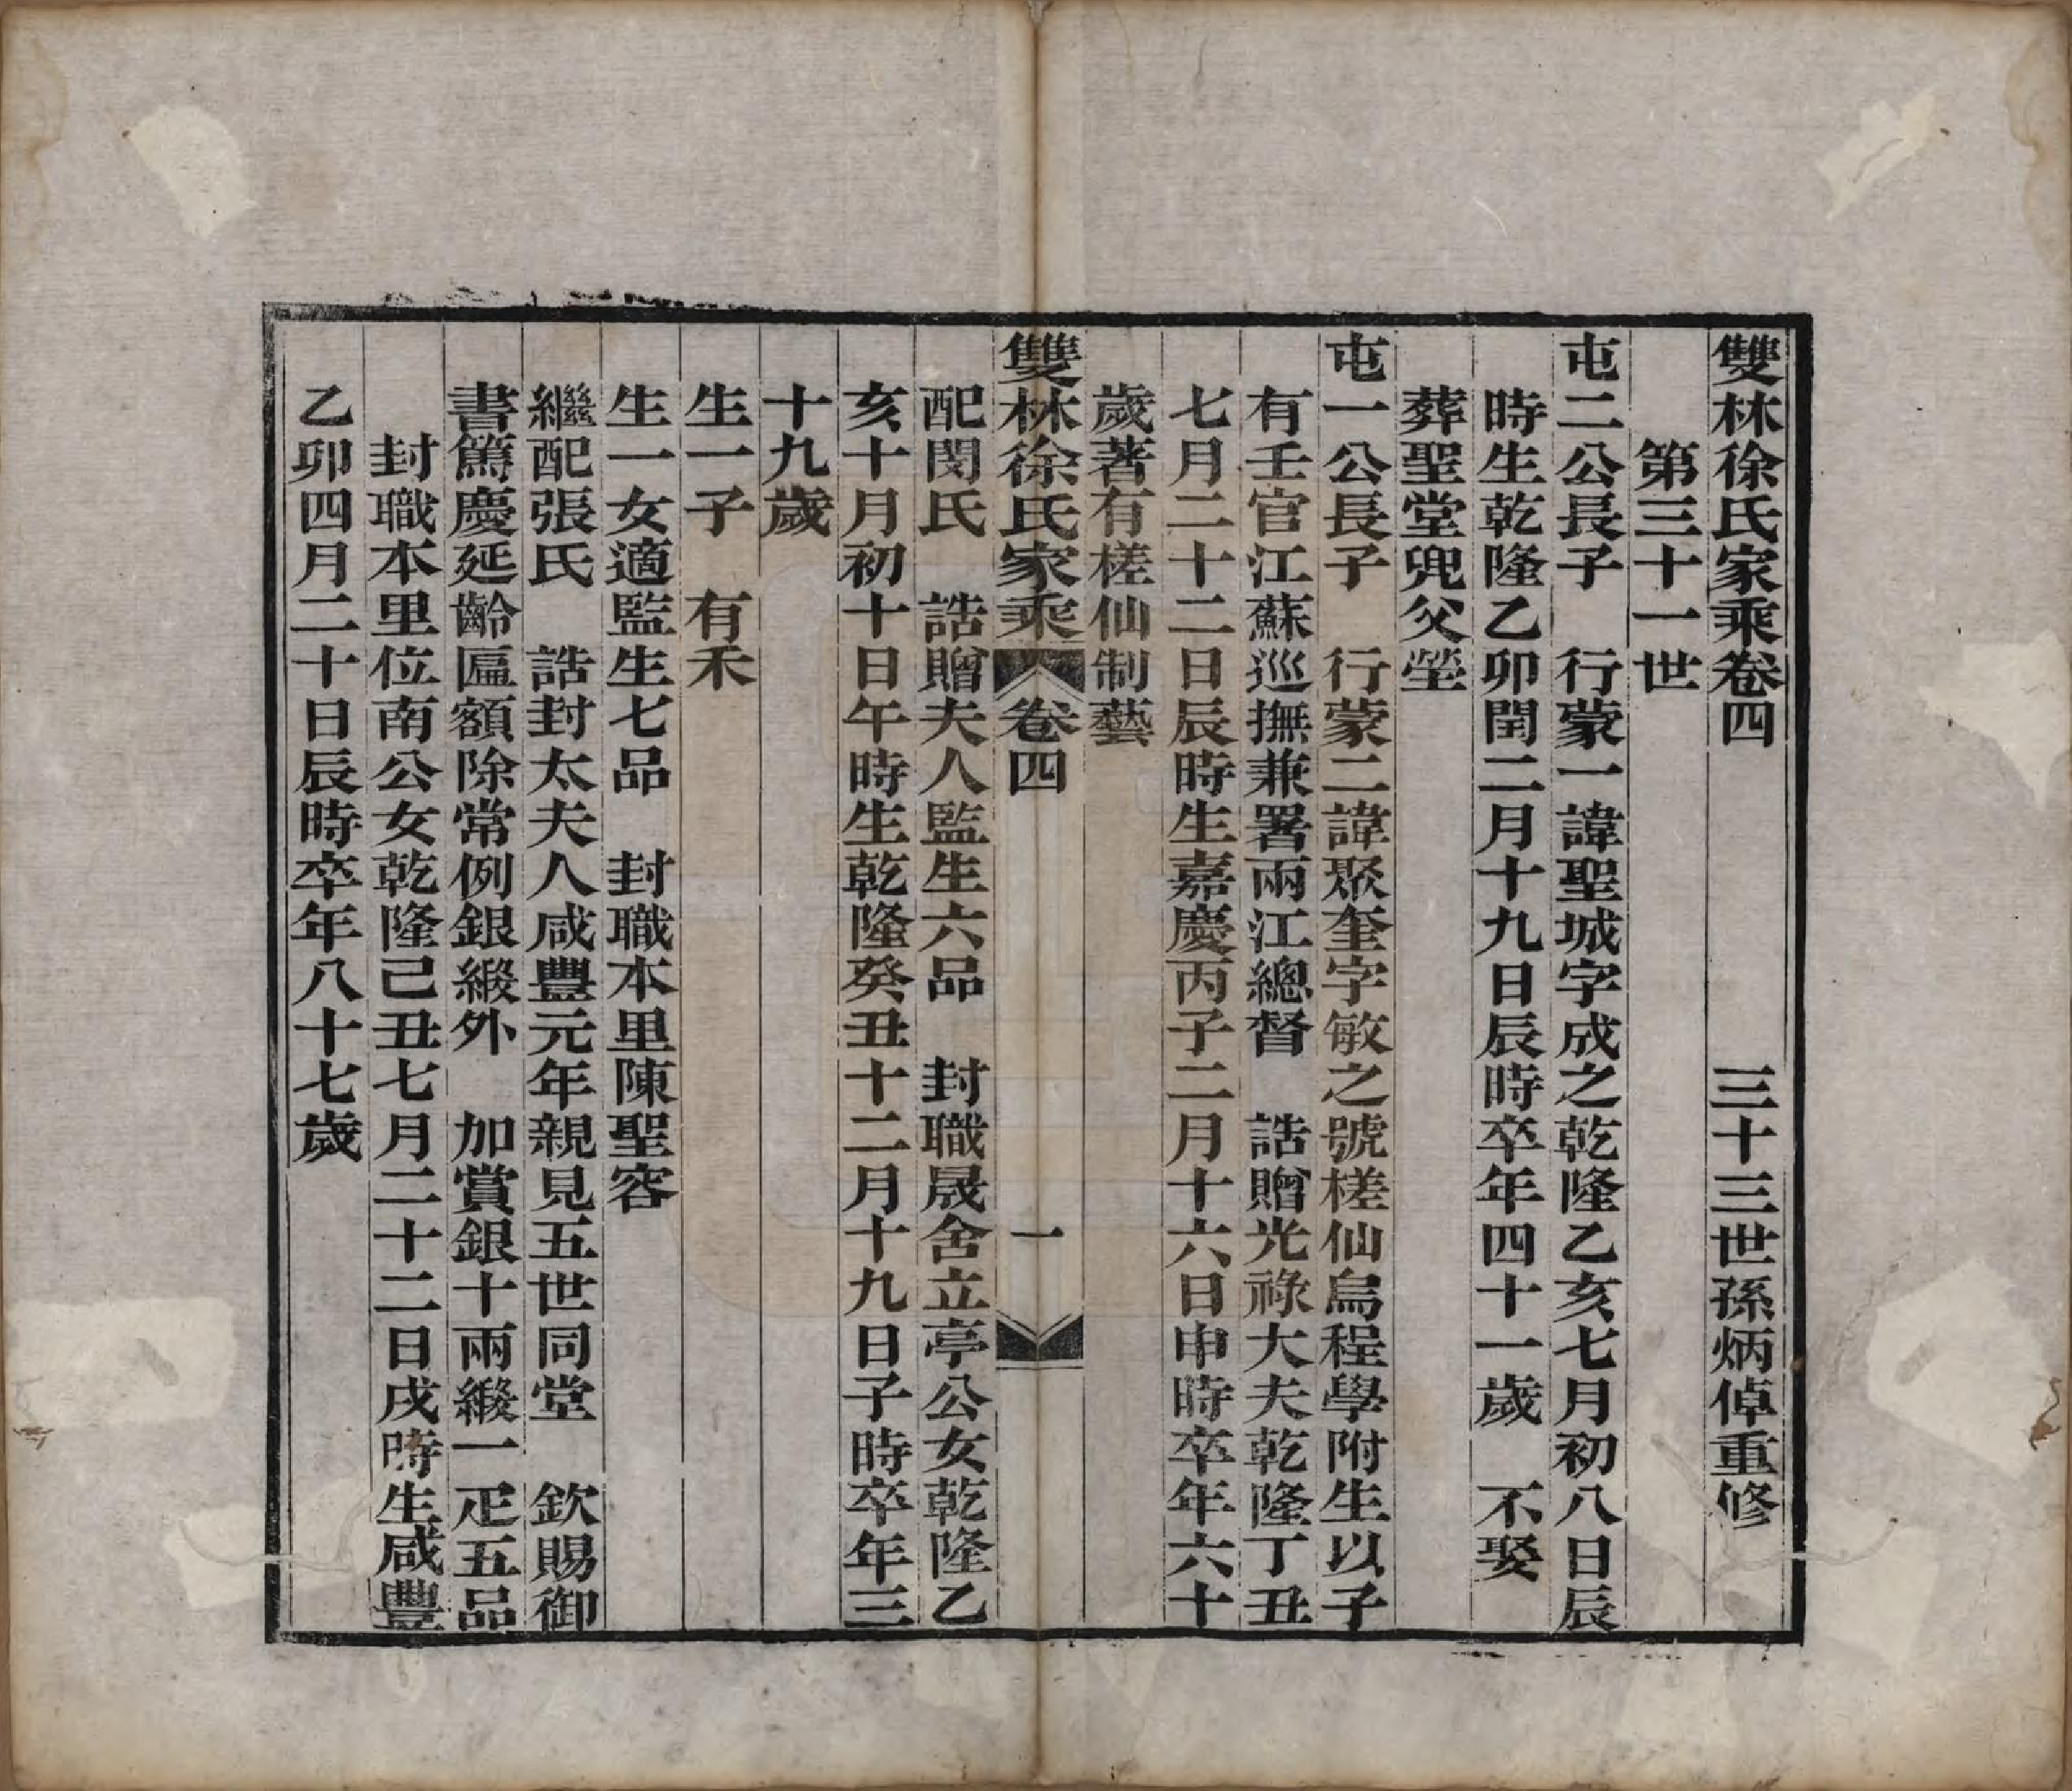 雙林徐氏家乘卷四　三十三世孫炳倬重修
第三十一世
屯二公長子　行蒙一諱聖城字成之乾隆乙亥七月初八日辰
時生乾隆乙卯閏二月十九日辰時卒年四十一歲　不娶
葬聖堂兜父塋
屯一公長子　行蒙二諱聚奎字敏之號槎仙烏程學附生以子
有壬官江蘇巡撫兼署兩江總督　誥贈光祿大夫乾隆丁丑
七月二十二日辰時生嘉慶丙子二月十六日申時卒年六十
歲著有槎仙制藝
雙林徐氏家乘　卷四　一
配閔氏　誥贈夫人監生六品　封職晟舍立亭公女乾隆乙
亥十月初十日午時生乾隆癸丑十二月十九日子時卒年三
十九歲
生一子　有禾
生一女適監生七品　封職本里陳聖容
繼配張氏　誥封太夫人咸豐元年親見五世同堂　欽賜御
書篤慶延齡匾額除常例銀緞外　加賞銀十兩緞一疋五品
封職本里位南公女乾隆己丑七月二十二日戌時生咸豐
乙卯四月二十日辰時卒年八十七歲